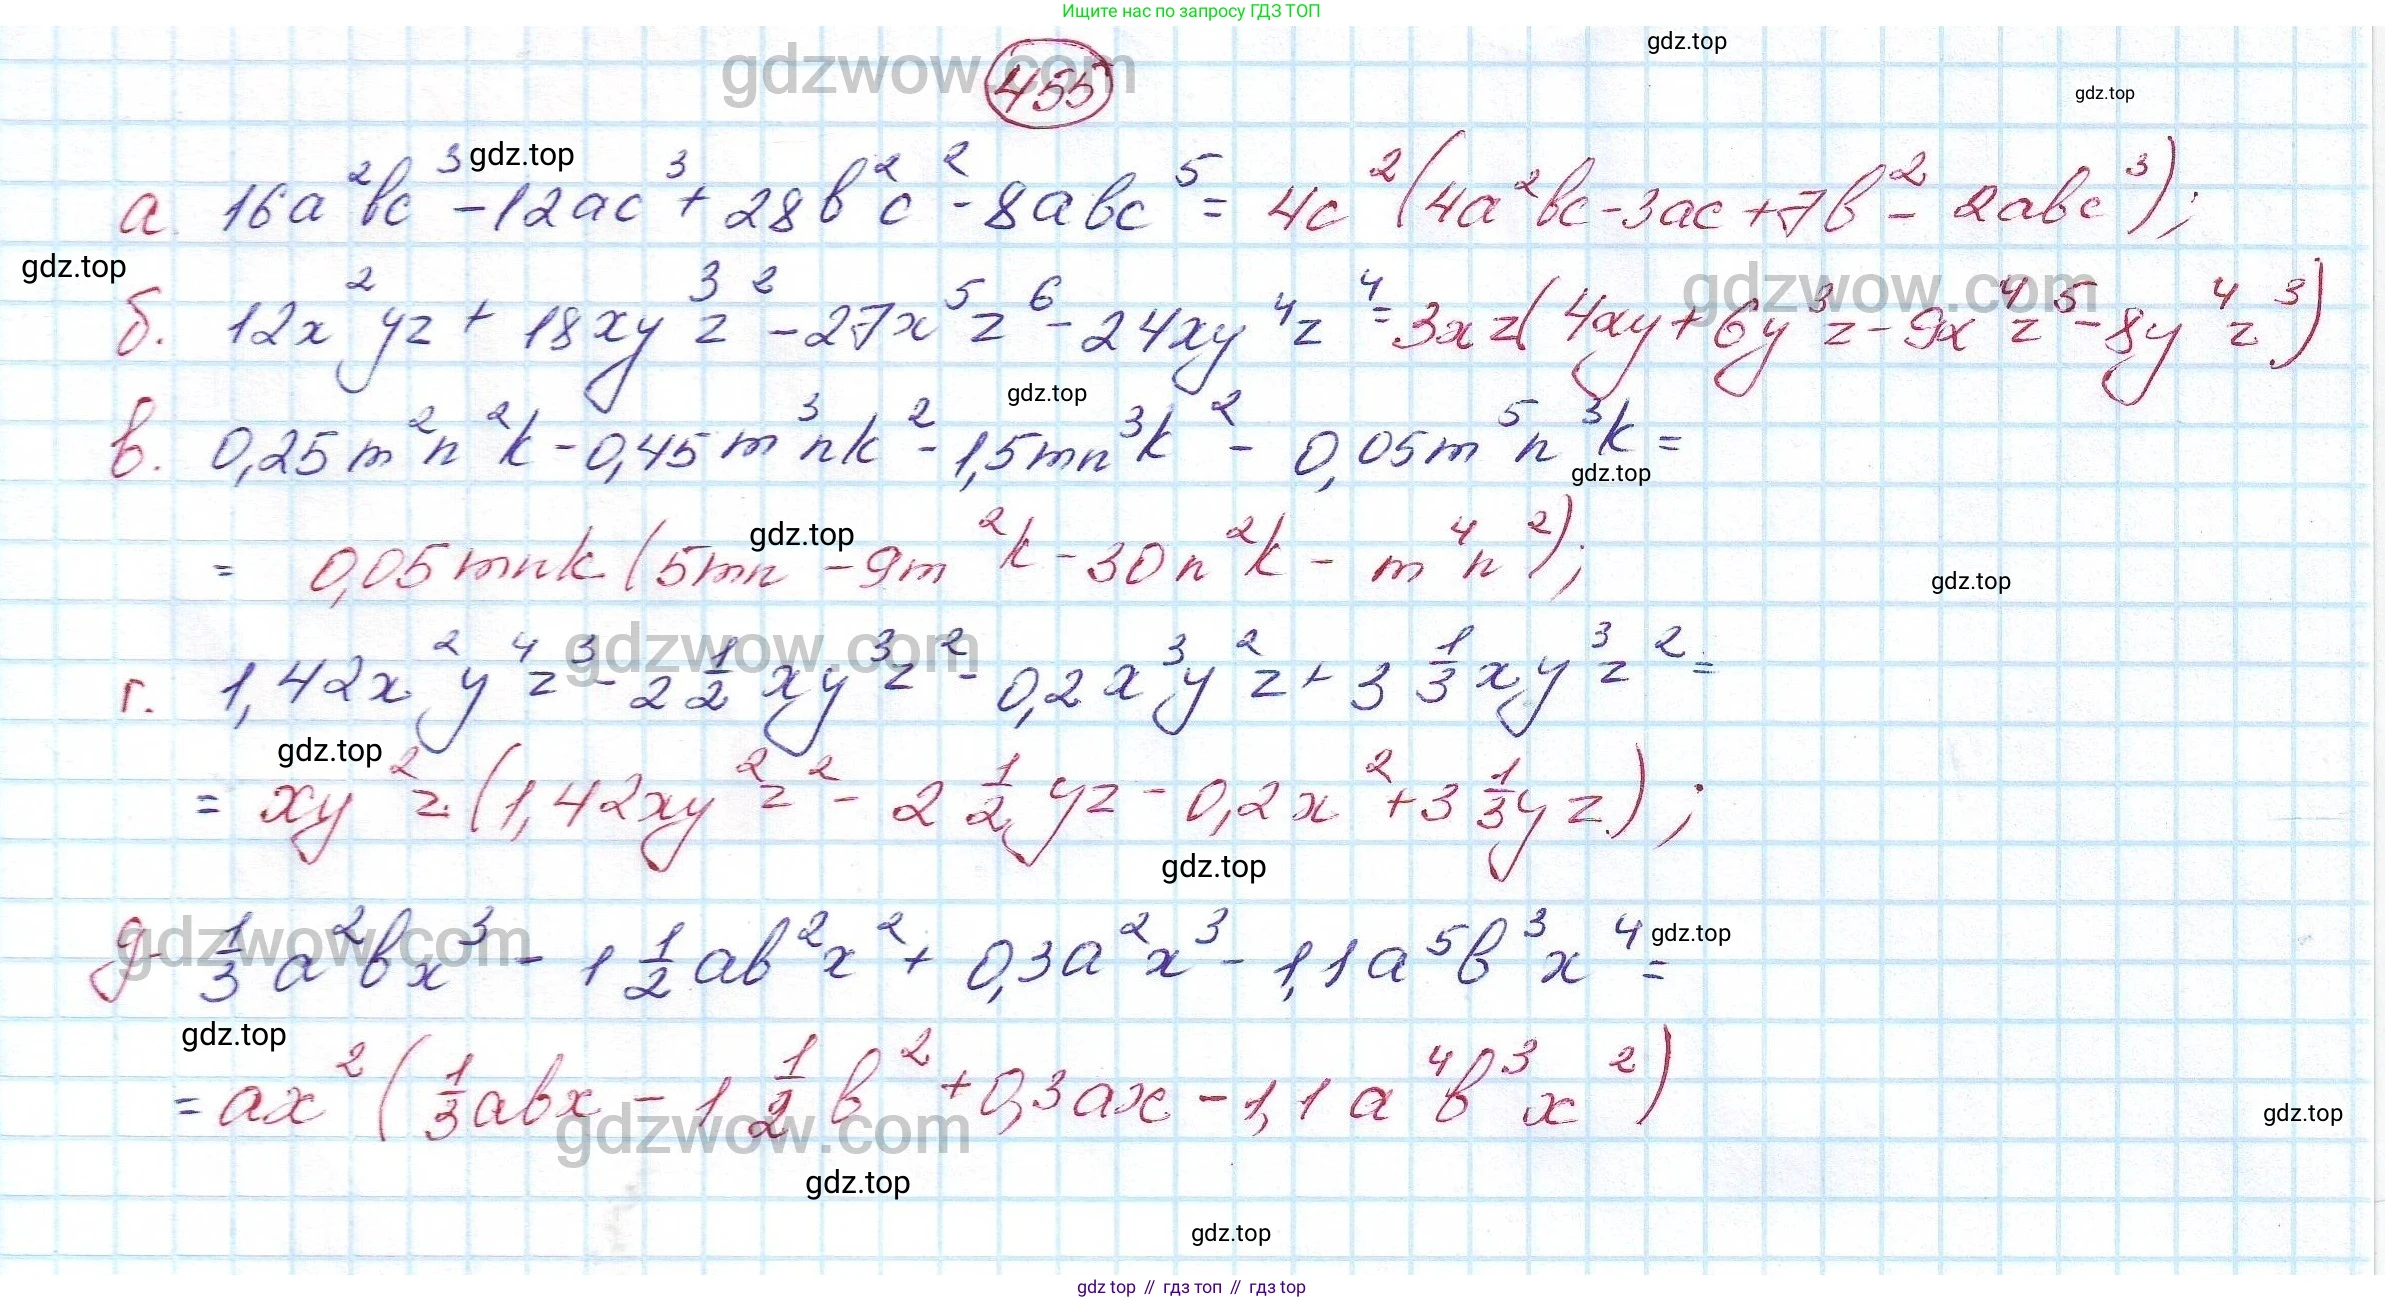 Ищите нас по запросу ГДЗ ТОП
gdzwow.com
455
gdz.top
gdz.top
gdz.top
а. 16a²bc³ - 12ac³ + 28b²c² - 8abc⁵ = 4c²(4a²bc - 3ac + 7b² - 2abc³);
gdz.top
gdzwow.com
б. 12x²yz + 18xy³z² - 27x⁵z⁶ - 24xy⁴z⁴ = 3xz(4xy + 6y³z - 9x⁴z⁵ - 8y⁴z³)
gdz.top
в. 0,25m²n²k - 0,45m³nk² - 1,5mn³k² - 0,05m⁵n³k =
gdz.top
gdz.top
= 0,05mnk(5mn - 9m²k - 30n²k - m⁴n²);
gdz.top
gdzwow.com
г. 1,42x²y⁴z³ - 2 1/2 xy³z² - 0,2x³y²z + 3 1/3 xy³z² =
gdz.top
= xy²z(1,42xy²z² - 2 1/2 yz - 0,2x² + 3 1/3 yz);
gdz.top
gdzwow.com
д. 1/3 a²bx³ - 1 1/2 ab²x² + 0,3a²x³ - 1,1a⁵b³x⁴ =
gdz.top
gdz.top
= ax²(1/3 abx - 1 1/2 b² + 0,3ax - 1,1a⁴b³x²)
gdzwow.com
gdz.top
gdz.top
gdz.top
gdz top // гдз топ // gdz top